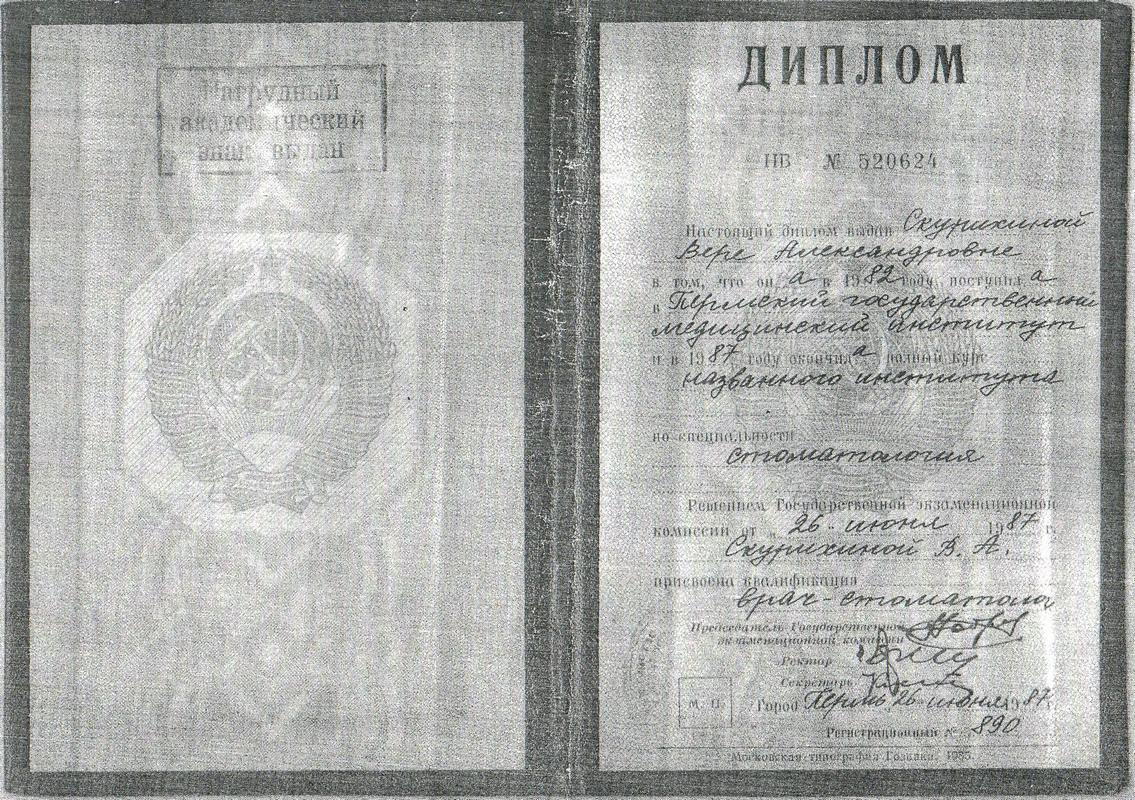 Нагрудный
академический
знак выдан
ДИПЛОМ
ИВ № 520624
Настоящий диплом выдан Скурихиной
Вере Александровне
в том, что он а в 1982 году поступил а
в Пермский государственный
медицинский институт
и в 1987 году окончил а полный курс
названного института
по специальности
стоматология
Решением Государственной экзаменационной
комиссии от „ 26 - июня 1987 г.
Скурихиной В. А.
присвоена квалификация
врач-стоматолог
Председатель Государственной
экзаменационной комиссии
Ректор
Секретарь
М. П.
Город Пермь 26 июня 1987 г.
Регистрационный № 890
Московская типография Гознака. 1985.